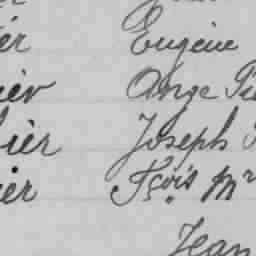 er Eugène
ier Ange Pie
ier Joseph
ier Fçois Mr
Jean